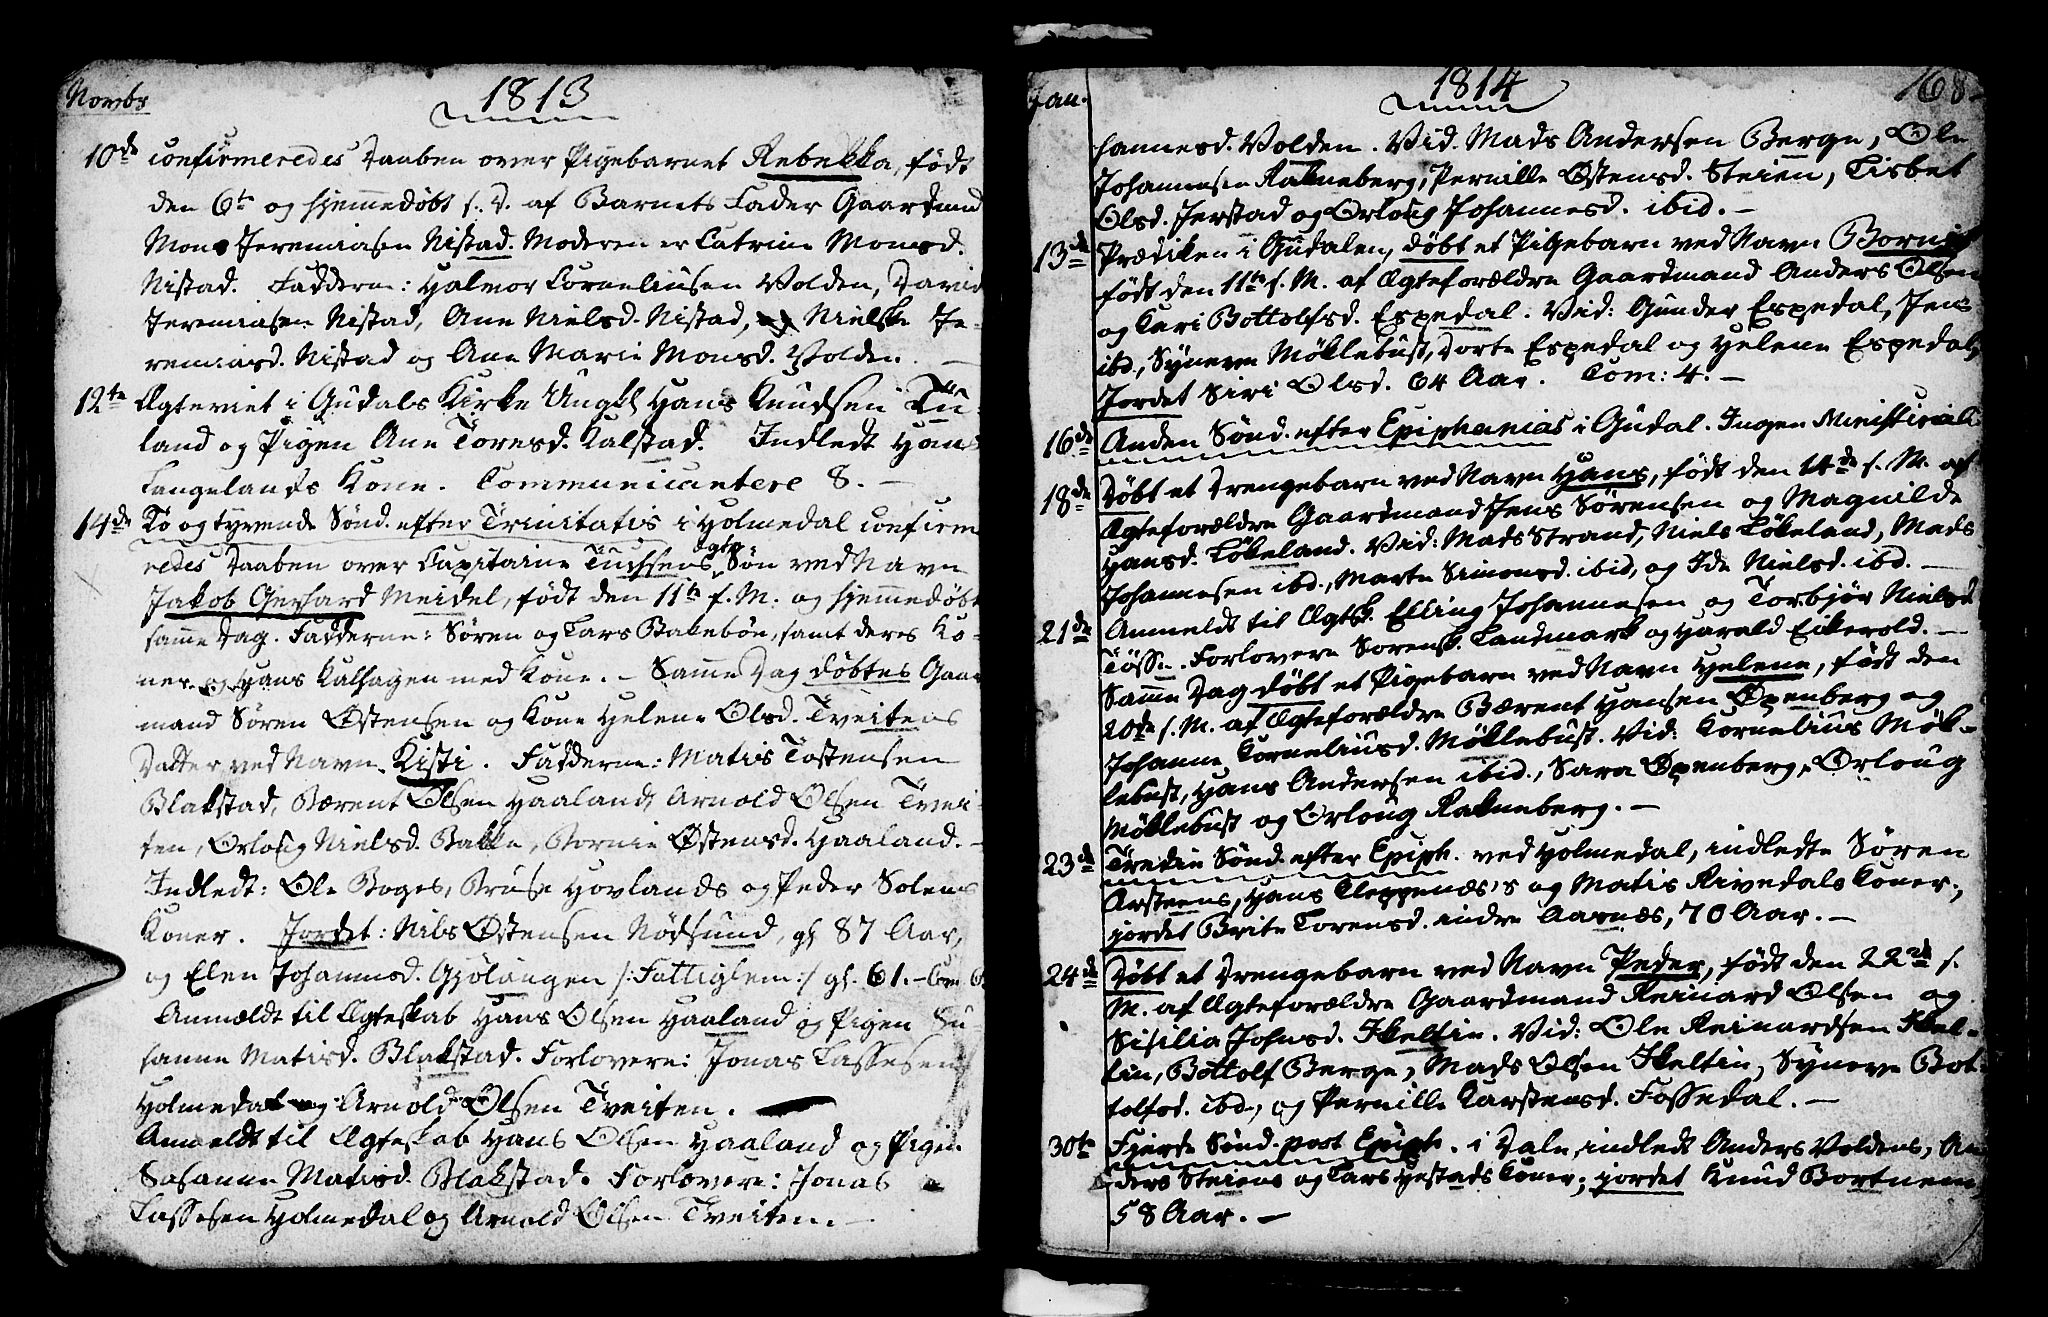 Novbr
1813
10de confirmeredes Daaben over Pigebarnet Rebekka, født
den 6te og hjemmedøbt s. D. af Barnets Fader Gaardmd
Mons Jeremiasen Nistad. Moderen er Catrine Monsd.
Nistad. Fadderne: Halvor Corneliusen Volden, David
Jeremiasen Nistad, Ane Nielsd. Nistad, og Nielske Je-
remiasd. Nistad og Ane Marie Monsd. Volden. —
12te Ægteviet i Gudals Kirke Ungkl Hans Knudsen Tu-
land og Pigen Ane Toresd. Kalstad. Indledt Hans
Langelands Kone. Communicantere 8. —
14de To og tyvende Sønd. efter Trinitatis i Holmedal confirm
redes Daaben over Capitaine Tuchsens ægte Søn ved Navn
Jakob Gerhard Meidel, født den 11te s. M. og hjemmedøbt
samme Dag. Fadderne: Søren og Lars Bakebøe, samt deres Ko-
ner og Hans Kalhagen med Kone. — Samme Dag døbtes Gaar
mand Søren Østensen og Kone Helene Olsd. Tveitens
Datter ved Navn Kisti. Fadderne: Matis Tostensen
Blakstad, Bærent Olsen Haaland, Arnold Olsen Tvei-
ten, Orloug Nielsd. Bakke, Bornie Østensd. Haaland. —
Indledt: Ole Boges, Bruse Hovlands og Peder Solems
Koner. Jordet: Nils Østensen Nødsund, gl 87 Aar,
og Elen Johannsd. Gjølangen /: Fattiglem :/ gl. 61. —
Anmældt til Ægteskab Hans Olsen Haaland og Pigen Su-
sanne Matisd. Blakstad. Forlovere: Jonas Lassesen
Holmedal og Arnold Olsen Tveiten.
Anmeldt til Ægteskab Hans Olsen Haaland og Pigen
Sasanne Matisd. Blakstad. Forlovere: Jonas
Lassesen Holmedal og Arnold Olsen Tveiten. —
Jan.
1814
168
hannesd. Volden. Vid. Mads Andersen Berge, Ole
Johannesen Rakneberg, Pernille Østensd. Steien, Lisbet
Olsd. Jerstad og Orloug Johannesd. ibid. —
13de Prædiken i Gudalen, døbt et Pigebarn ved Navn Bornie
født den 11te s. M. af Ægteforældre Gaardmand Anders Olsen
og Kari Bottolfsd. Espedal. Vid: Gunder Espedal, Jens
ibd., Syneve Møklebust, Dorte Espedal og Helene Espedal,
Jordet Siri Olsd. 64 Aar. Com: 4. —
16de Anden Sønd. efter Epiphanias i Gudal. Ingen Ministerial:
18de Døbt et Drengebarn ved Navn Hans, født den 14de s. M. af
Ægteforældre Gaardmand Jens Sørensen og Magnilde
Hansd. Løkeland. Vid: Mads Strand, Niels Løkeland, Mads
Johannesen ibd., Marte Simonsd. ibid, og Ide Nielsd. ibd. —
21de Anmeldt til Ægtsk. Elling Johannesen og Torbjør Nielsd
Tøsse. Forlovere Sorensk. Landmark og Harald Eikevold. —
Samme Dag døbt et Pigebarn ved Navn Helene, født den
20de s. M. af Ægteforældre Bærent Hansen Øpenberg og
Johanne Korneliusd. Møklebust. Vid: Kornelius Møk-
lebust, Hans Andersen ibid., Sara Øpenberg, Orloug
Møklebust og Orloug Rakneberg. —
23de Tredie Sønd. efter Epiph. ved Holmedal, indledte Søren
Arsteens, Hans Cleppenæs's og Matis Rivedals Koner.,
jordet Brite Toresd. indre Aarnæs, 70 Aar. —
24de Døbt et Drengebarn ved Navn Peder, født den 22de s.
M. af Ægteforældre Gaardmand Reinard Olsen og
Sisilia Johnsd. Ikeltin. Vid: Ole Reinardsen Ikel-
tin, Bottolf Berge, Mads Olsen Ikeltin, Syneve Bot-
tolfsd. ibd., og Pernille Karstensd. Fossedal. —
30te Fjerde Sønd. post Epiph. i Dale, indledt Anders Voldens, An
ders Steiens og Lars Hestads Koner; jordet Knud Bortnem,
58 Aar. —